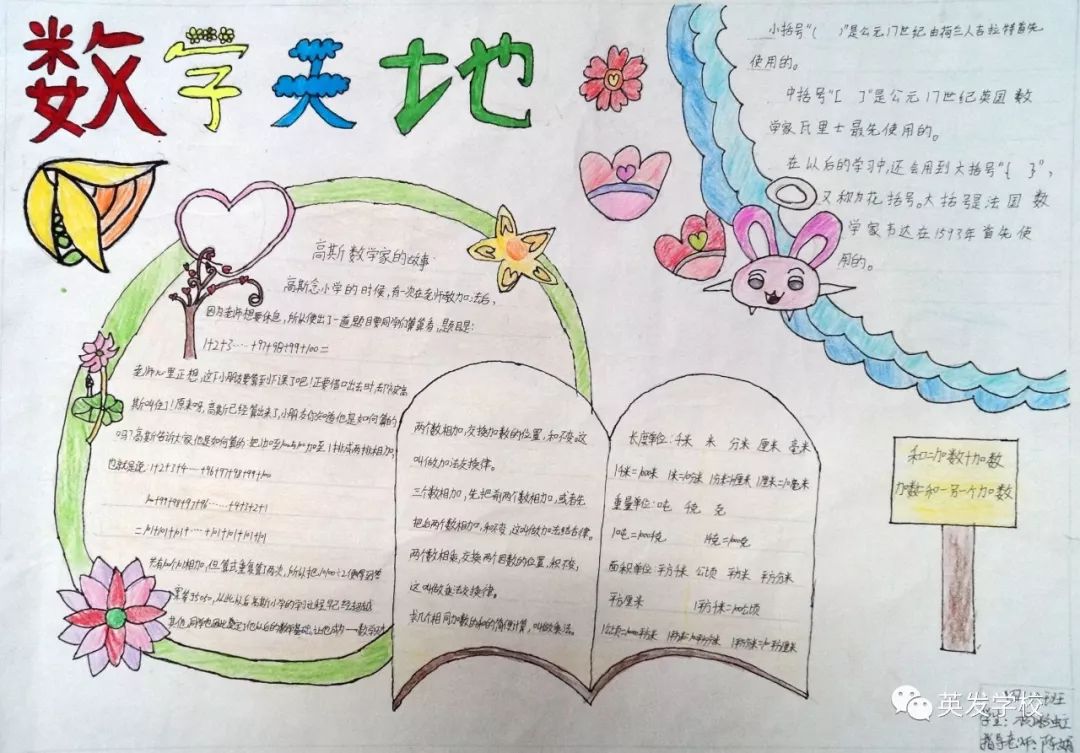 数学天地
小括号“（ ）”是公元17世纪由荷兰人吉拉特首先
使用的。
中括号“[ ]”是公元17世纪英国数
学家瓦里士最先使用的。
在以后的学习中,还会用到大括号“{ }”,
又称为花括号。大括号是法国数
学家韦达在1593年首先使
用的。
高斯数学家的故事
高斯念小学的时候,有一次在老师教加法后,
因为老师想要休息,所以便出了一道题目要同学们算算看,题目是:
1+2+3……+97+98+99+100=
老师心里正想,这下小朋友要算到下课了吧!正要借口出去时,却被高
斯叫住了!原来呀,高斯已经算出来了,小朋友你知道他是如何算的
吗?高斯告诉大家他是如何算的:把1加至100与100加至1排成两排相加,
也就是说:1+2+3+4+…+96+97+98+99+100
100+99+98+97+96……+4+3+2+1
=101+101+101+…+101+101+101+101
共有100个101相加,但算式重复了两次,所以把10100÷2便得到答
案等5050,从此以后高斯小学的学习过程早已经超越
其他同学也因此奠定了他以后的数学基础,让他成为
两个数相加,交换加数的位置,和不变,这
叫做加法交换律。
三个数相加,先把前两个数相加,或者先
把后两个数相加,和不变,这叫做加法结合律。
两个数相乘,交换两个因数的位置,积不变,
这叫做乘法交换律。
求几个相同加数的和的简便计算,叫做乘法。
长度单位:千米 米 分米 厘米 毫米
1千米=1000米 1米=10分米 1分米=10厘米 1厘米=10毫米
重量单位:吨 千克 克
1吨=1000千克 1千克=1000克
面积单位:平方千米 公顷 平方米 平方分米
平方厘米 1平方千米=100公顷
1公顷=10000平方米 1平方米=100平方分米 1平方分米=100平方厘米
和=加数+加数
加数=和-另一个加数
英发学校